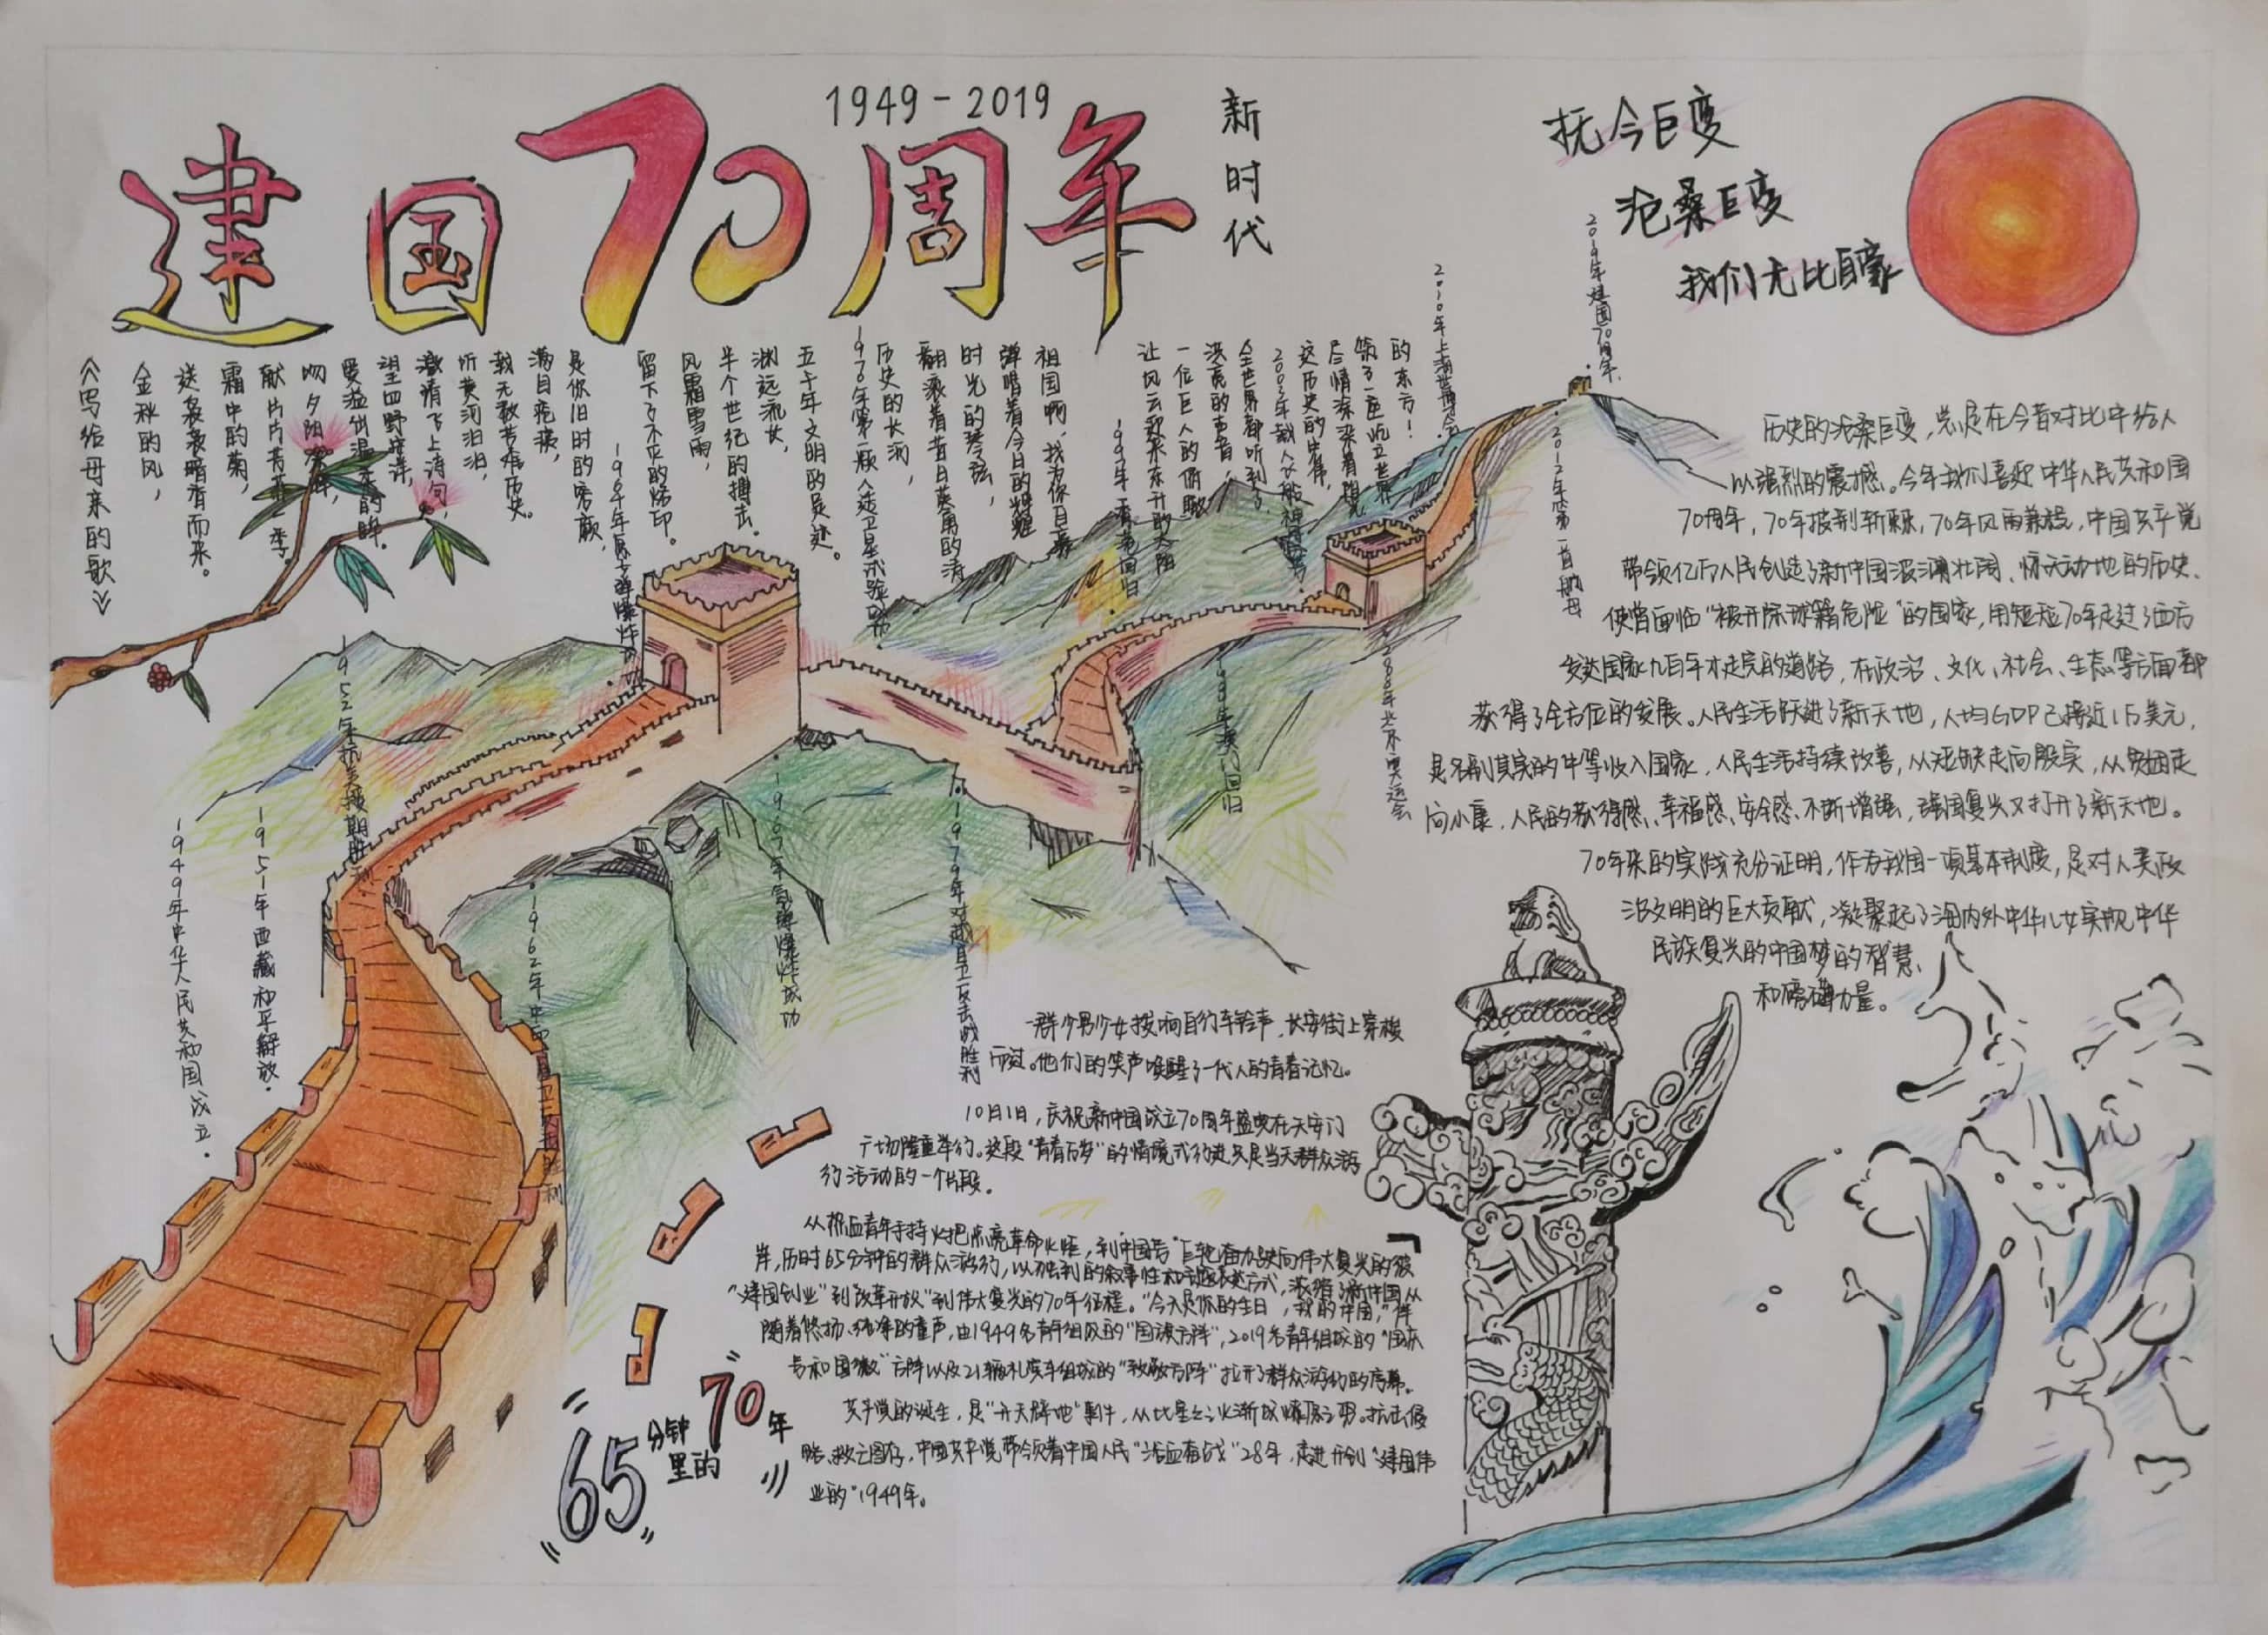 1949-2019
建国70周年
新时代
抚今巨变
沧桑巨变
我们无比自豪
《写给母亲的歌》
金秋的风，
送袅袅暗香而来。
霜中的菊，
献片片芳菲一季。
吻夕阳余晖，
望四野茫茫，
激情飞上诗句，
听黄河汩汩，
载无数苦难历史。
满目疮痍，
是你旧时的容颜，
留下了不灭的烙印。
风霜雪雨，
半个世纪的搏击。
渊远流长，
五千年文明的足迹。
历史的长河，
翻滚着昔日英勇的涛
时光的琴弦，
弹唱着今日的辉煌
祖国啊，我为你自豪
让风云起来东升的太阳
一位巨人的俯瞰
洪亮的声音，
全世界都听到了
这历史的史焦，
尽情深深看现
筑了一座屹立世界
的东方！
1949年中华人民共和国成立.
1951年西藏和平解放.
1952年抗美援朝胜利.
1962年中印自卫反击胜利
1964年原子弹爆炸成功
1967年氢弹爆炸成功
1970年第一颗人造卫星试验成功
1979年对越自卫反击战胜利
1997年香港回归
1999年澳门回归
2003年载人飞船神舟五号
2008年北京奥运会
2010年上海世博会
2012年第一首航母
2019年建国70周年.
历史的沧桑巨变，总是在今昔对比中给人
以强烈的震撼。今年我们喜迎中华人民共和国
70周年，70年披荆斩棘，70年风雨兼程，中国共产党
带领亿万人民创造了新中国波澜壮阔、惊天动地的历史、
使曾面临“被开除球籍危险”的国家，用短短70年走过了西方
发达国家几百年才走完的道路，在政治、文化、社会、生态等方面都
获得了全方位的发展。人民生活跃进了新天地，人均GDP已接近1万美元，
是名副其实的中等收入国家，人民生活持续改善，从短缺走向殷实，从贫困走
向小康，人民的获得感、幸福感、安全感、不断增强，强国复兴又打开了新天地。
70年来的实践充分证明，作为我国一项基本制度，是对人类政
治文明的巨大贡献，凝聚起了海内外中华儿女实现中华
民族复兴的中国梦的智慧、
和磅礴力量。
一群少男少女按响自行车铃声，长安街上穿梭
而过。他们的笑声唤醒了一代人的青春记忆。
10月1日，庆祝新中国成立70周年盛典在天安门
广场隆重举行。这段“青春万岁”的情境式行进只是当天群众游
行活动的一个片段。
从热血青年手持火把点亮革命火炬，到“中国号”巨轮奋力驶向伟大复兴的彼
岸，历时65分钟的群众游行，以独到的叙事性和主题表达方式，浓缩了新中国从
“建国创业”到“改革开放”到伟大复兴的70年征程。“今天是你的生日，我的中国，”伴
随着悠扬、纯净的童声，由1949名青年组成的“国旗方阵”，2019名青年组成的“国庆
号和国徽”方阵以及21辆礼宾车组成的“致敬方阵”拉开了群众游行的序幕。
共产党的诞生，是“开天辟地”事件，从此星星之火渐成燎原之势。抗击侵
略、救亡图存，中国共产党带领着中国人民“浴血奋战”28年，走进开创“建国伟
业的”1949年。
“65”分钟里的“70”年